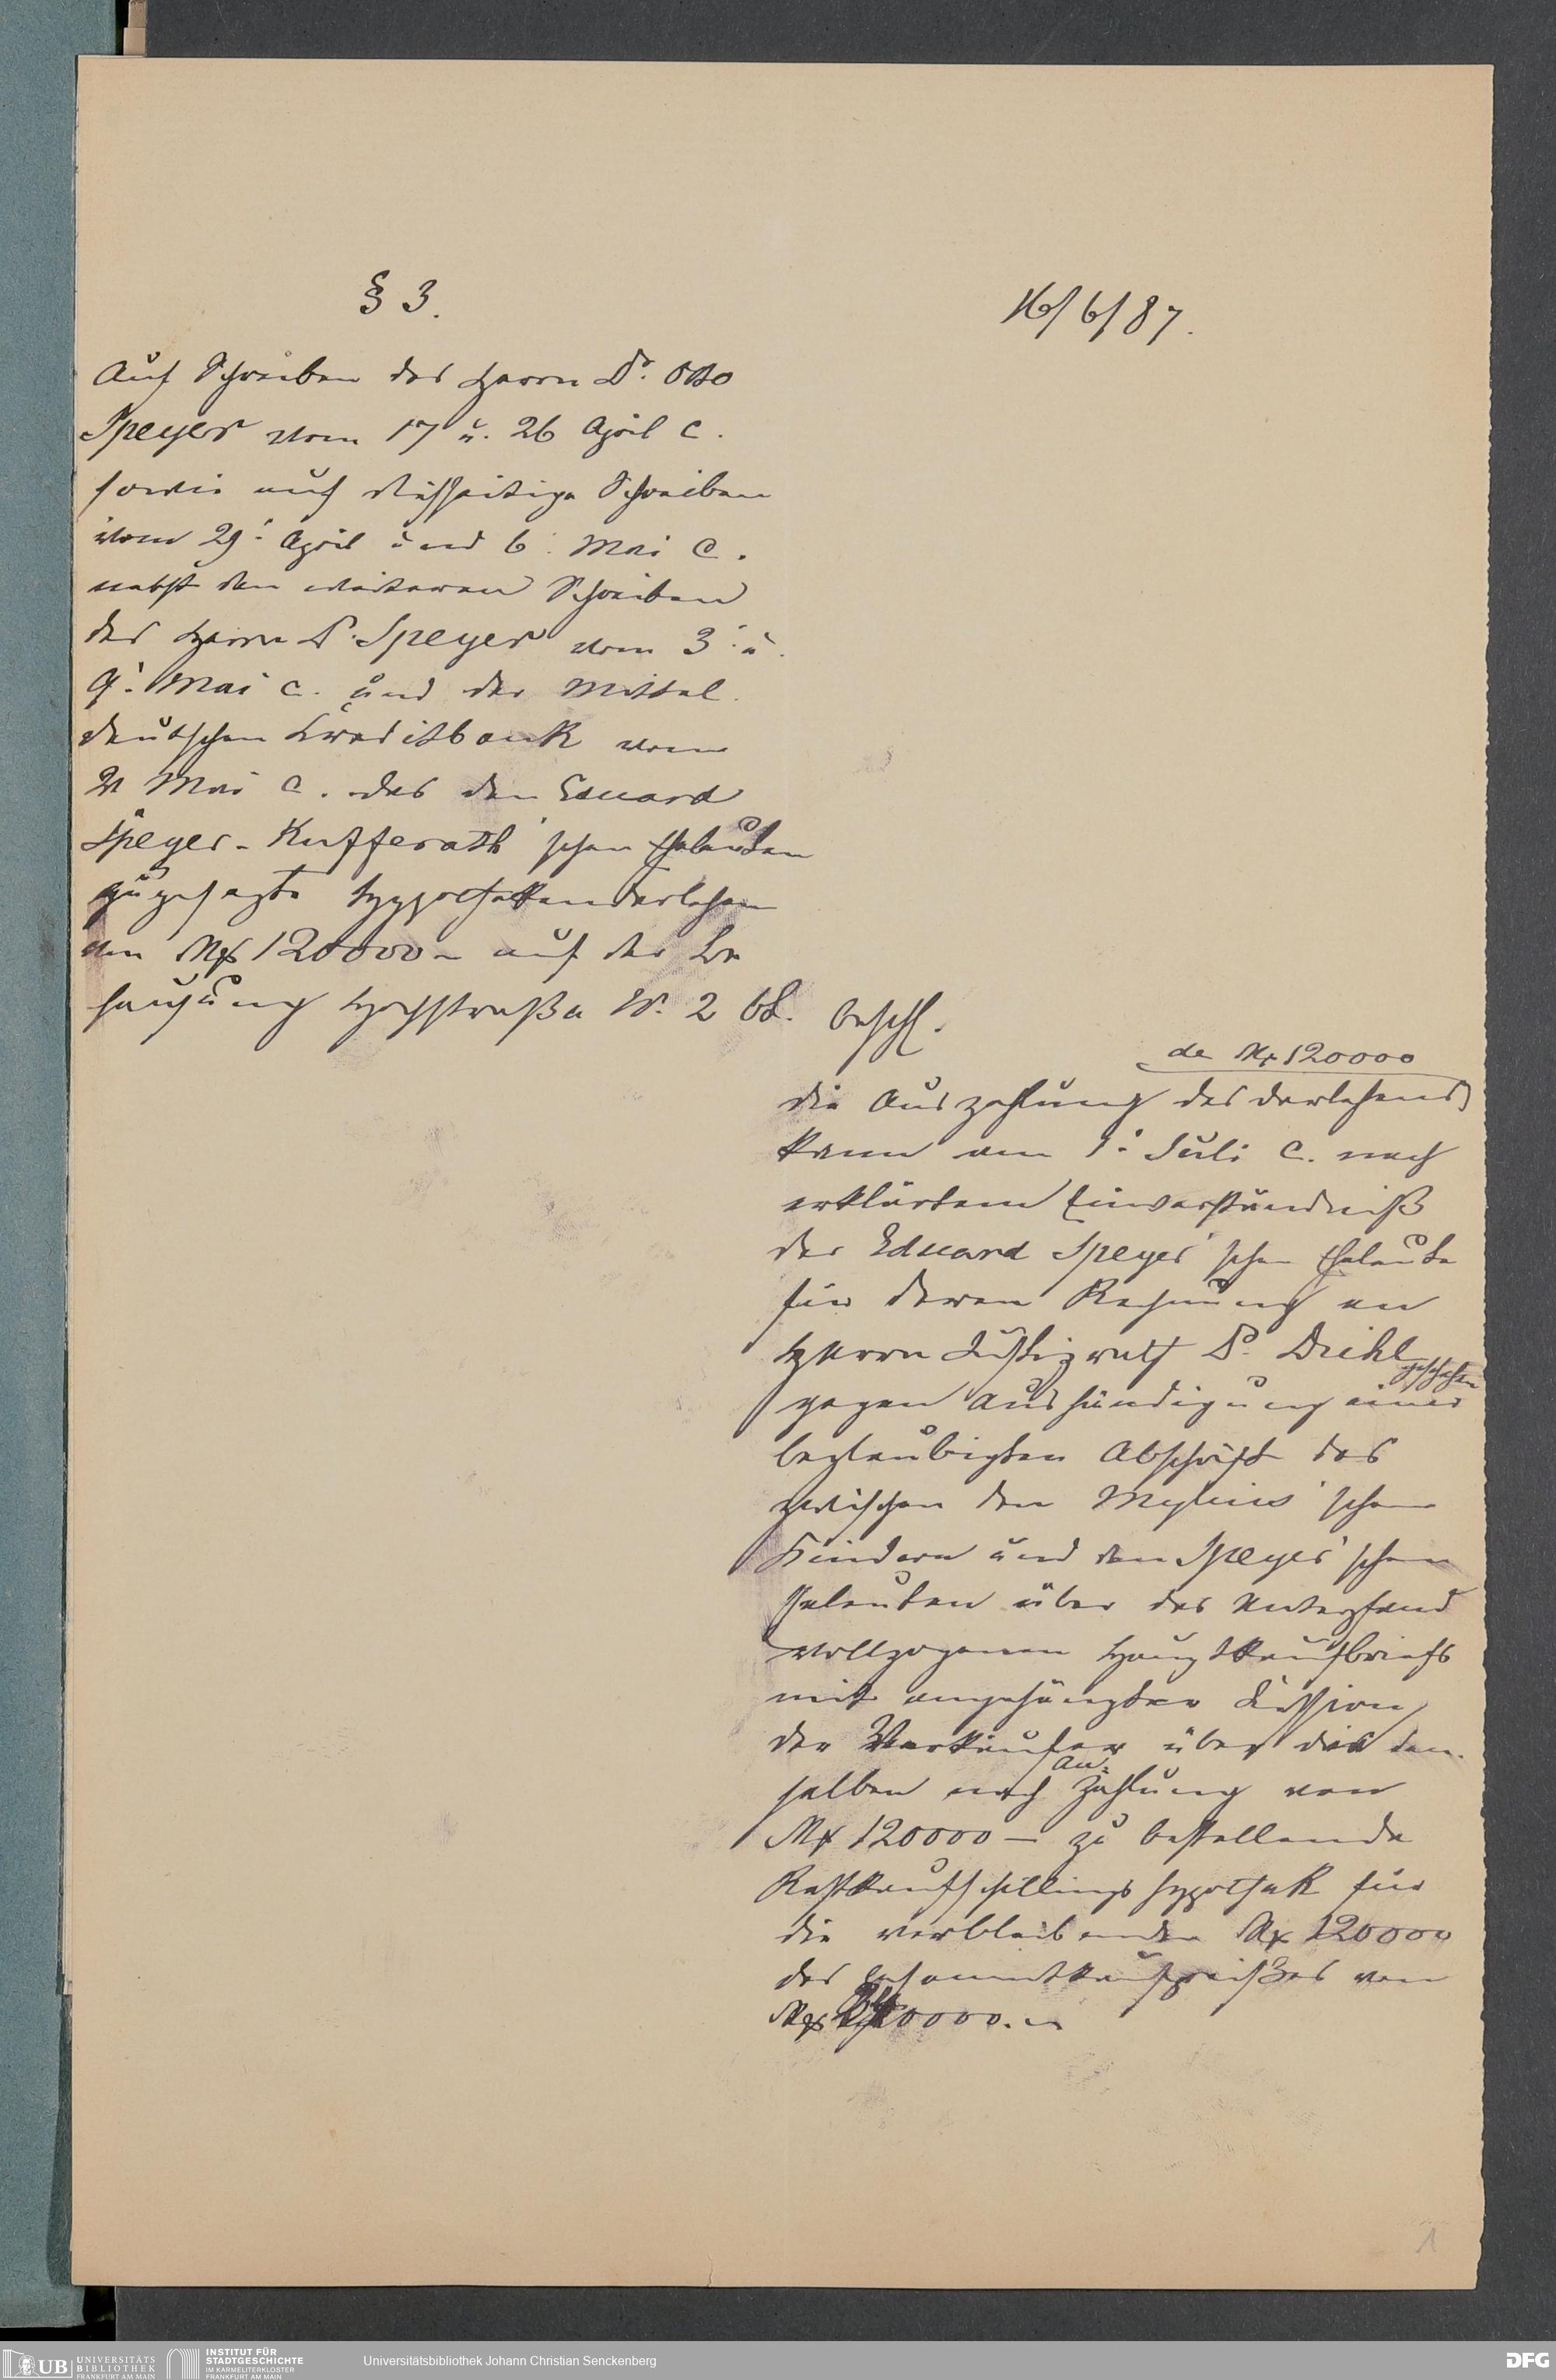 § 3.
16/6/87.
Auf Schreiben des Herrn Dr. Otto
Speyer vom 17 u. 26 April c.
sowie auf diesseitige Schreiben
vom 29. April und 6. Mai c.
nebst den weiteren Schreiben
des Herrn Dr. Speyer vom 3. u.
9. Mai c. und der Mittel-
deutschen Kreditbank vom
Mai c. das den Eduard
Speyer-Kufferath'schen Eheleuten
zugesagte Hypothekendarlehen
von Mk 120000 – auf der Be
hausung Hochstraße No. 2 btr. beschl.
de Mk 120000
die Auszahlung des Darlehens
kann am 1. Juli c. nach
erklärtem Einverständniß
der Eduard Speyer'schen Eheleute
für deren Rechnung an
Herrn Justizrath Dr. Diehl
geschehen
gegen Aushändigung einer
beglaubigten Abschrift des
zwischen den Mylius'schen
Kindern und den Speyer'schen
Eheleuten über das Unterpfand
vollzogenen Hauptkaufbriefs
mit angehängter Cession
der Verkäufer über die den-
An-
selben nach Zahlung von
Mk 120000 — zu bestellende
Restkaufschillingshypothek für
die verbleibenden Mk 120000
des Gesammtkaufpreißes von
Mk 240000.–
1
UB UNIVERSITÄTS
BIBLIOTHEK
FRANKFURT AM MAIN
INSTITUT FÜR
STADTGESCHICHTE
IM KARMELITERKLOSTER
FRANKFURT AM MAIN
Universitätsbibliothek Johann Christian Senckenberg
DFG